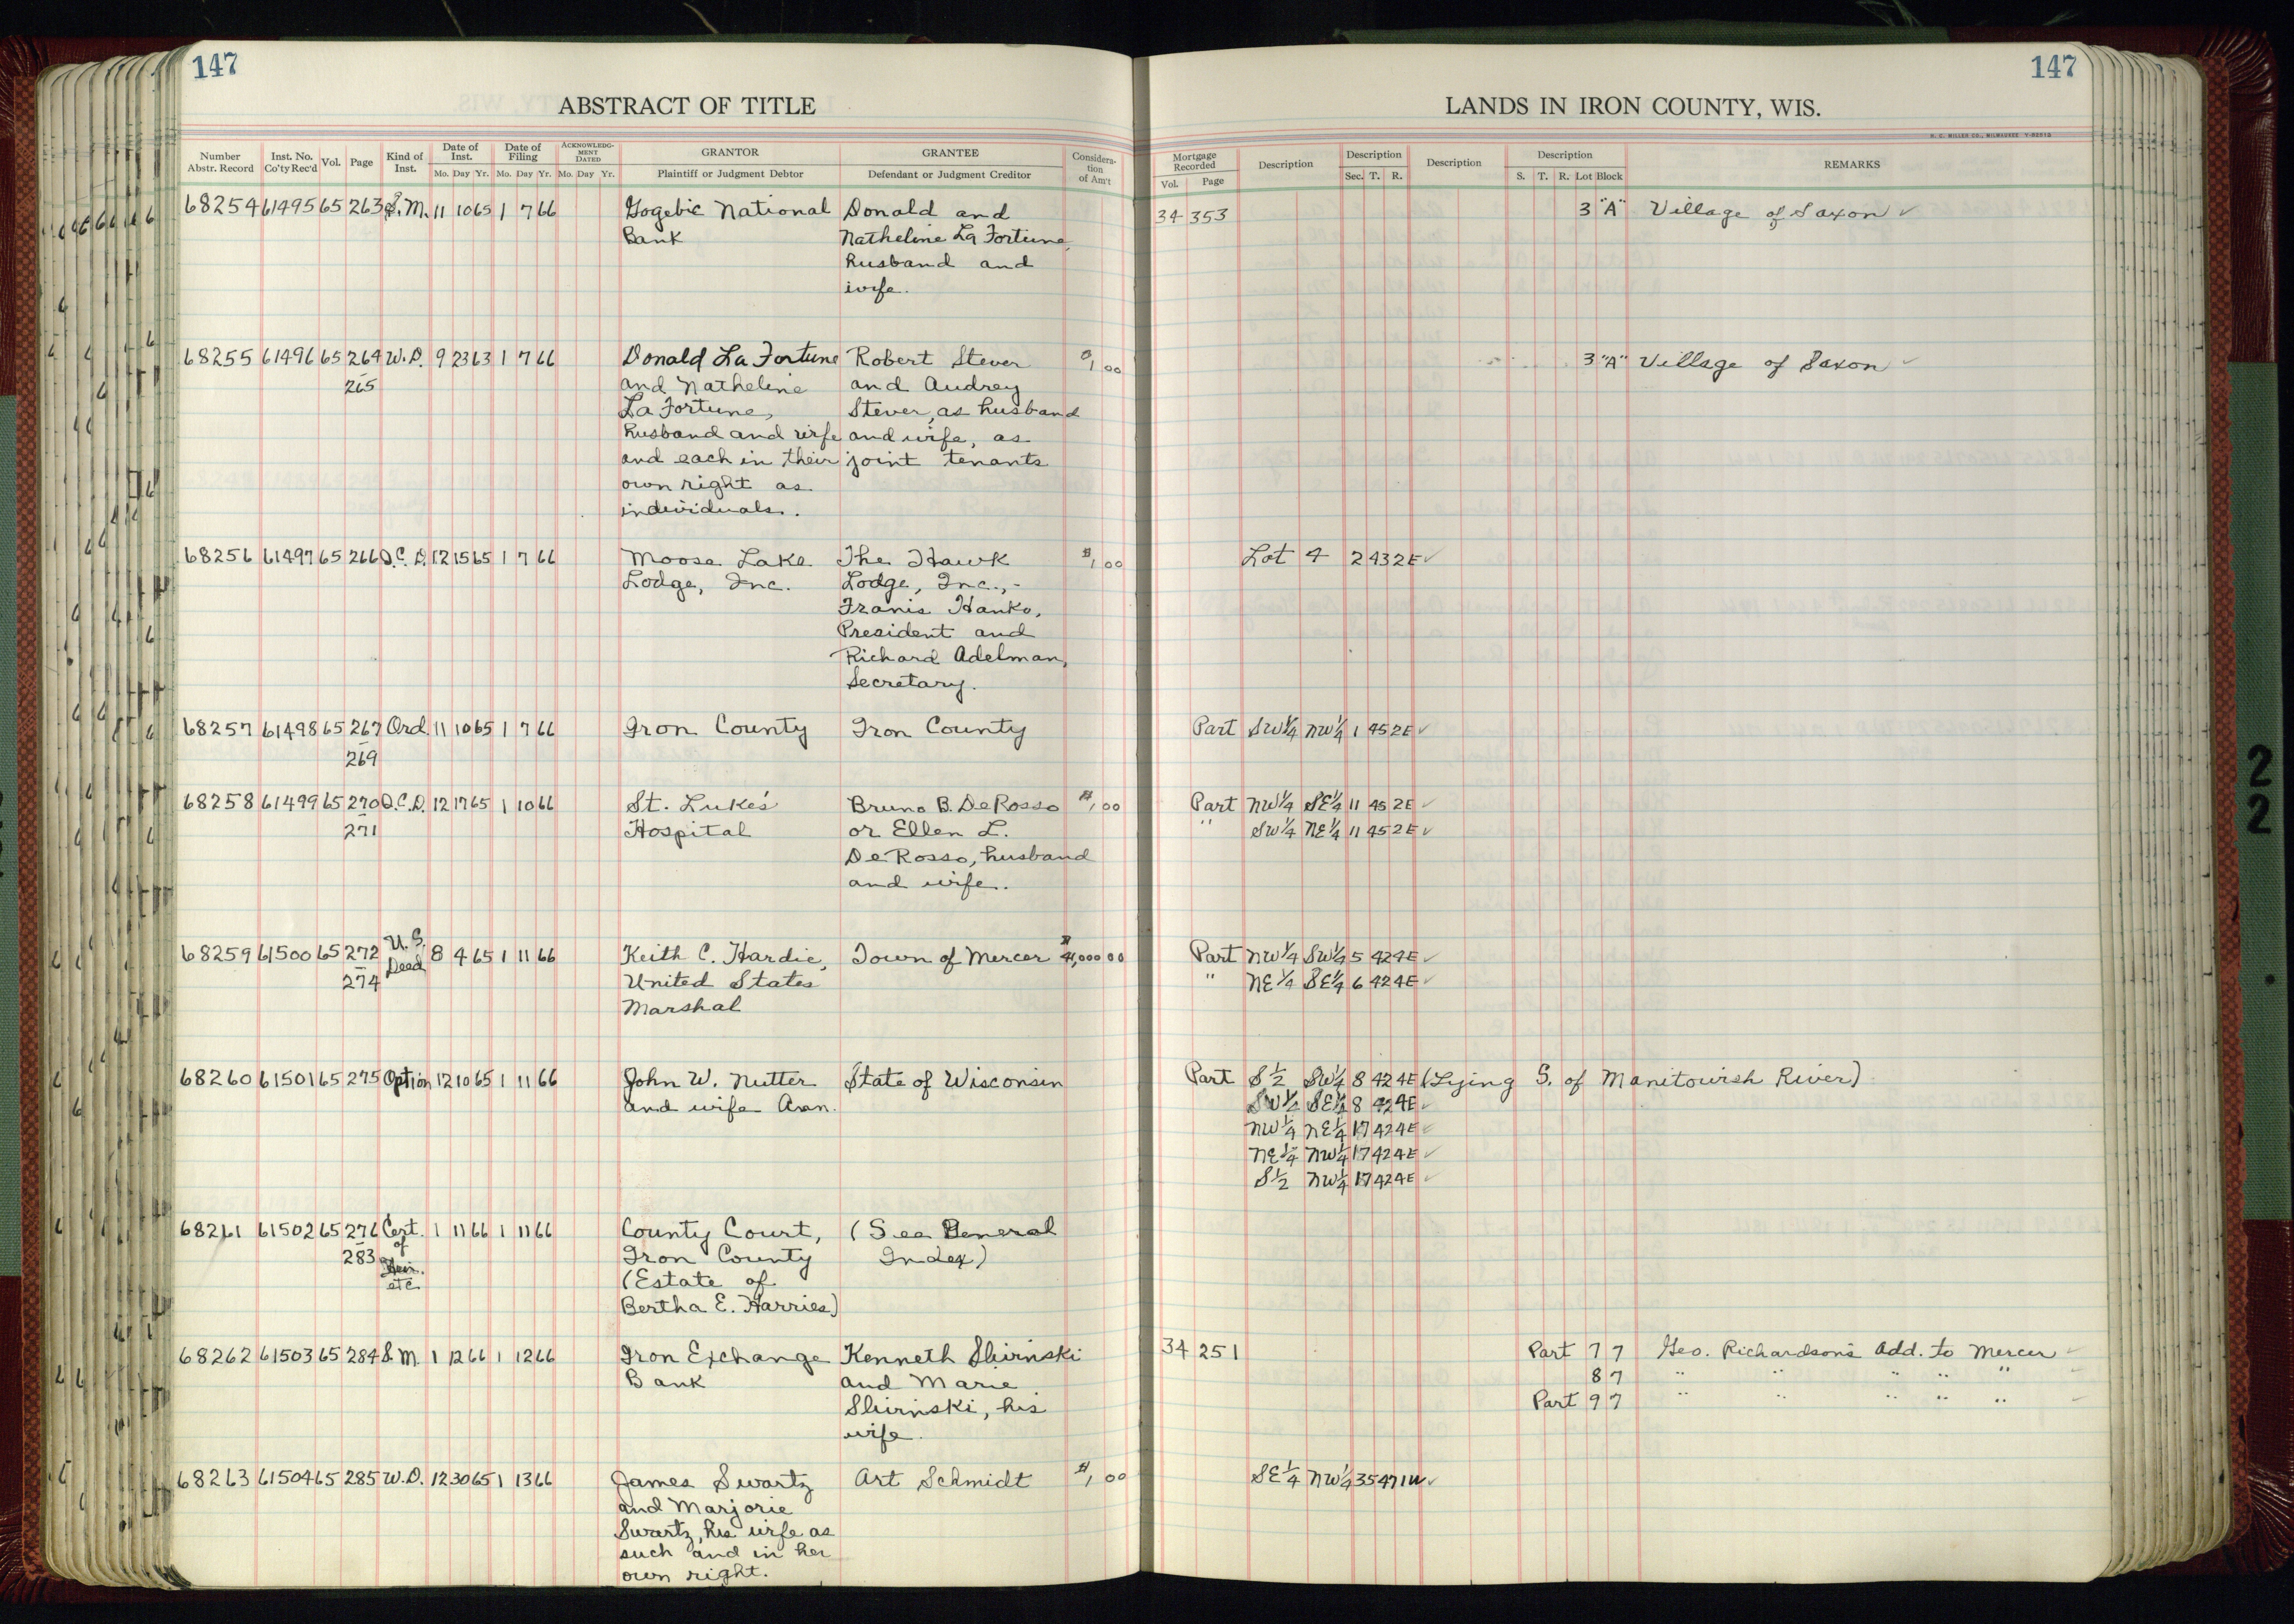 147
147
ABSTRACT OF TITLE
LANDS IN IRON COUNTY, WIS.
H. C. MILLER CO., MILWAUKEE
Number Abstr. Record Inst. No. Co'ty Rec'd Vol. Page Kind of Inst. Date of Inst. Mo. Day Yr. Date of Filing Mo. Day Yr. ACKNOWLEDGMENT DATED Mo. Day Yr. GRANTOR Plaintiff or Judgment Debtor GRANTEE Defendant or Judgment Creditor Consideration of Am't Mortgage Recorded Vol. Page Description Description Sec. T. R. Description Description S. T. R. Lot Block REMARKS
68254 61495 65 263 S.M. 11 10 65 1 7 66 Gogebic National Donald and 34 353 3 "A" Village of Saxon ✓
Bank Natheline La Fortune,
husband and
wife.
68255 61496 65 264 W.D. 9 23 63 1 7 66 Donald La Fortune Robert Stever $1,00 3 "A" Village of Saxon ✓
265 and Natheline and Audrey
La Fortune, Stever, as husband
husband and wife and wife, as
and each in their joint tenants
own right as
individuals.
68256 61497 65 266 Q.C.D. 12 15 65 1 7 66 Moose Lake The Hawk $1,00 Lot 4 2 43 2E ✓
Lodge, Inc. Lodge, Inc.,-
Franis Hanko,
President and
Richard Adelman,
Secretary.
68257 61498 65 267 Ord. 11 10 65 1 7 66 Iron County Iron County Part SW¼ NW¼ 1 45 2E ✓
269
68258 61499 65 270 Q.C.D. 12 17 65 1 10 66 St. Luke's Bruno B. DeRosso $1,00 Part NW¼ SE¼ 11 45 2E ✓
271 Hospital or Ellen L. " SW¼ NE¼ 11 45 2E ✓
De Rosso, husband
and wife.
68259 61500 65 272 U.S. Deed 8 4 65 1 11 66 Keith C. Hardie, Town of Mercer $4,000 00 Part NW¼ SW¼ 5 42 4E ✓
274 United States " NE¼ SE¼ 6 42 4E ✓
Marshal
68260 61501 65 275 Option 12 10 65 1 11 66 John W. Nutter State of Wisconsin Part S½ SW¼ 8 42 4E (Lying S. of Manitowish River)
and wife Ann. SW¼ SE¼ 8 42 4E ✓
NW¼ NE¼ 17 42 4E ✓
NE¼ NW¼ 17 42 4E ✓
S½ NW¼ 17 42 4E ✓
68261 61502 65 276 Cert. 1 11 66 1 11 66 County Court, (See General
283 of Iron County Index)
etc (Estate of
Bertha E. Harries)
68262 61503 65 284 S.M. 1 12 66 1 12 66 Iron Exchange Kenneth 34 251 Part 7 7 Geo. Richardson's Add. to Mercer ✓
Bank and Marie 8 7 " " " " " ✓
his Part 9 7 " " " " " ✓
wife.
68263 61504 65 285 W.D. 12 30 65 1 13 66 James Swartz Art Schmidt $1,00 SE¼ NW¼ 35 47 1W ✓
and Marjorie
Swartz, his wife as
such and in her
own right.
2
2